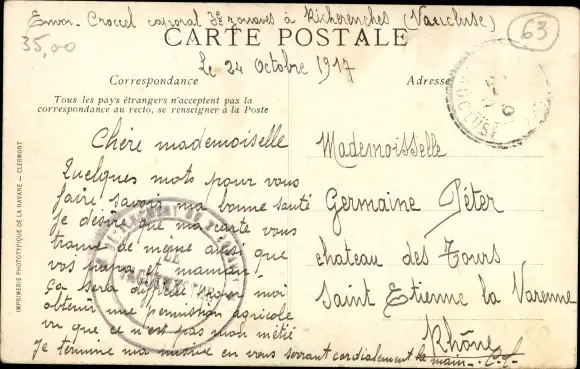 Envoi. Croccel caporal 3e zouaves à Richerenches (Vaucluse)
63
35,00
CARTE POSTALE
Le 24 Octobre 1917
Correspondance
Adresse
Tous les pays étrangers n'acceptent pas la
correspondance au recto, se renseigner à la Poste
Chère mademoiselle
Quelques mots pour vous
faire savoir ma bonne santé
Je désire que ma carte vous
trouve de même ainsi que
vos papa et maman.
Ça sera difficile pour moi
obtenir une permission agricole
vu que ce n'est pas mon métié
Je termine ma missive en vous serrant cordialement la main
Mademoisselle
Germaine Péter
chateau des Tours
Saint Etienne la Varenne
Rhône
IMPRIMERIE PHOTOTYPIQUE DE LA HAVANE — CLERMONT